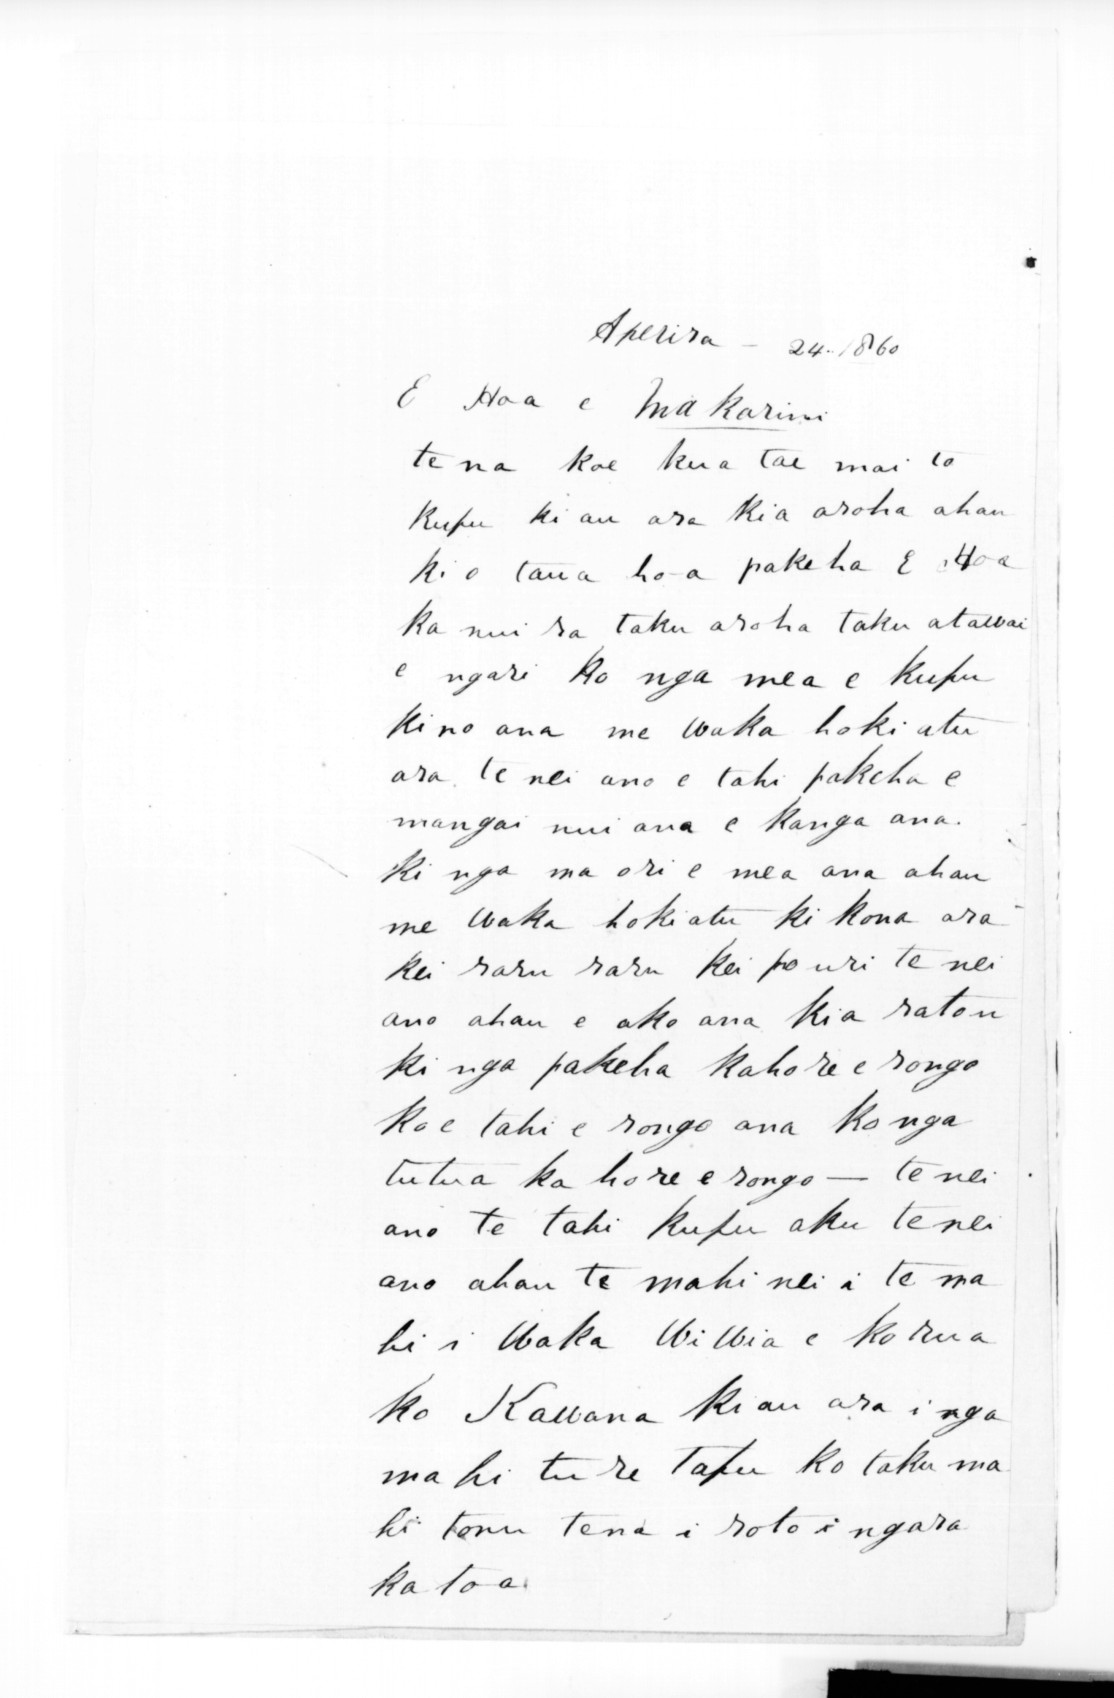 Aperira - 24. 1860
E Hoa e Makarini
tena koe kua tae mai to
kupu ki au ara kia aroha ahau
ki o taua hoa pakeha E Hoa
ka nui ra taku aroha taku atawai
e ngari ko nga mea e kupu
kino ana me waka hoki atu
ara tenei ano e tahi pakeha e
mangai nui ana e kanga ana.
ki nga ma ori e mea ana ahau
me waka hoki atu ki kona ara
kei raru raru kei po uri te nei
ano ahau e ako ana kia ratou
ki nga pakeha kahore e rongo
ko e tahi e rongo ana ko nga
tutua ka hore e rongo — te nei
ano te tahi kupu aku te nei
ano ahau te mahi nei i te ma
hi i waka wiwia e korua
ko Kawana ki au ara i nga
ma hi ture Tapu ko taku ma
hi tonu tena i roto i ngara
ka toa